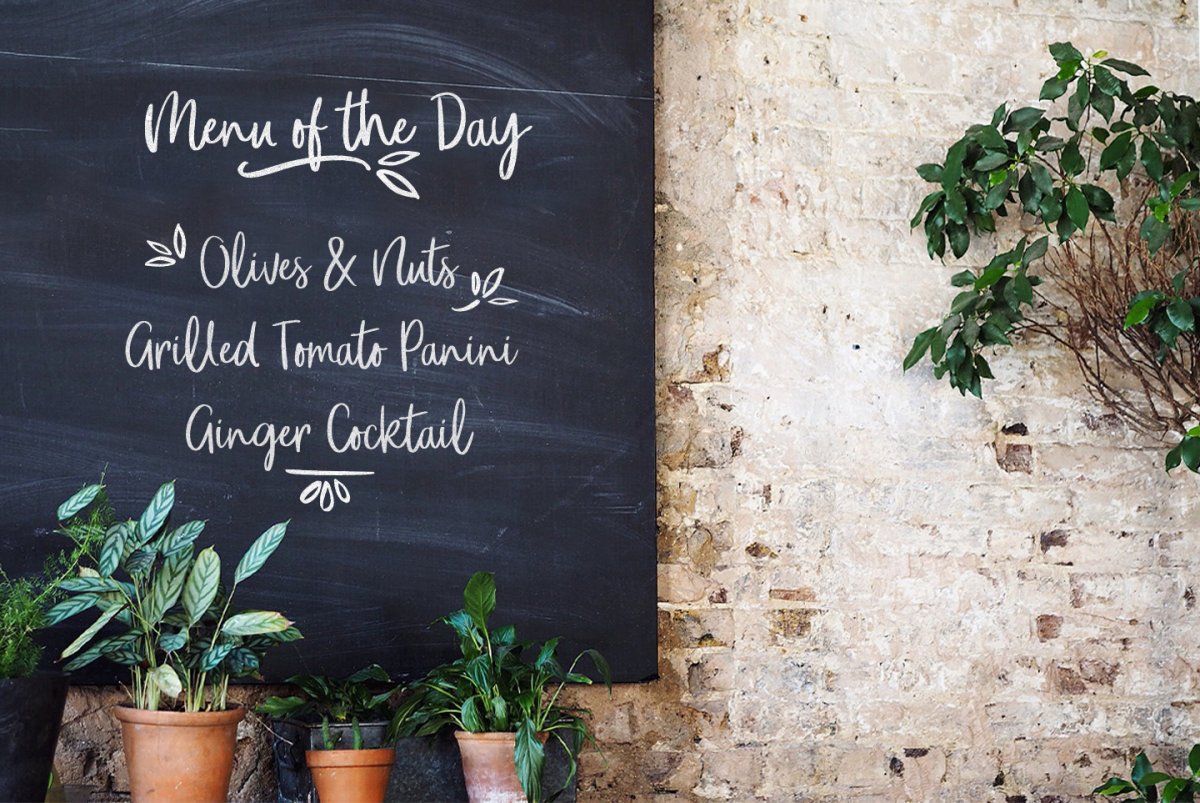 Menu of the Day
Olives & Nuts
Grilled Tomato Panini
Ginger Cocktail